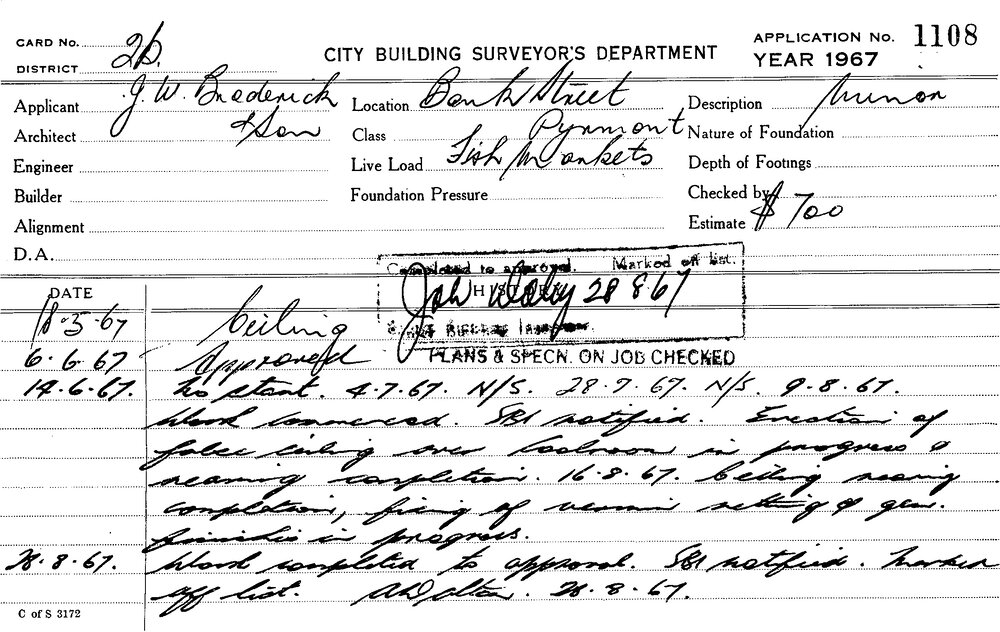 CARD No. 2b.
DISTRICT
CITY BUILDING SURVEYOR'S DEPARTMENT
APPLICATION No. 1108
YEAR 1967
Applicant J. W. Broderick
Location Bank Street
Description Minor
Architect & Son
Class Pyrmont
Nature of Foundation
Engineer
Live Load Fish Markets
Depth of Footings
Builder
Foundation Pressure
Checked by
Alignment
Estimate $700
D. A.
Completed to approval. Marked off list.
28 8 67
PLANS & SPECN. ON JOB CHECKED
DATE
18.5.67 Ceiling
6.6.67 Approved
14.6.67. No start. 4.7.67. N/S. 28.7.67. N/S. 9.8.67.
Work commenced. SBI notified. Erection of
false ceiling over coolroom in progress &
nearing completion. 16.8.67. Ceiling nearing
completion, fixing of vermin netting & gen.
finishes in progress.
28.8.67. Work completed to approval. SBI notified. Marked
off list. 28.8.67.
C of S 3172